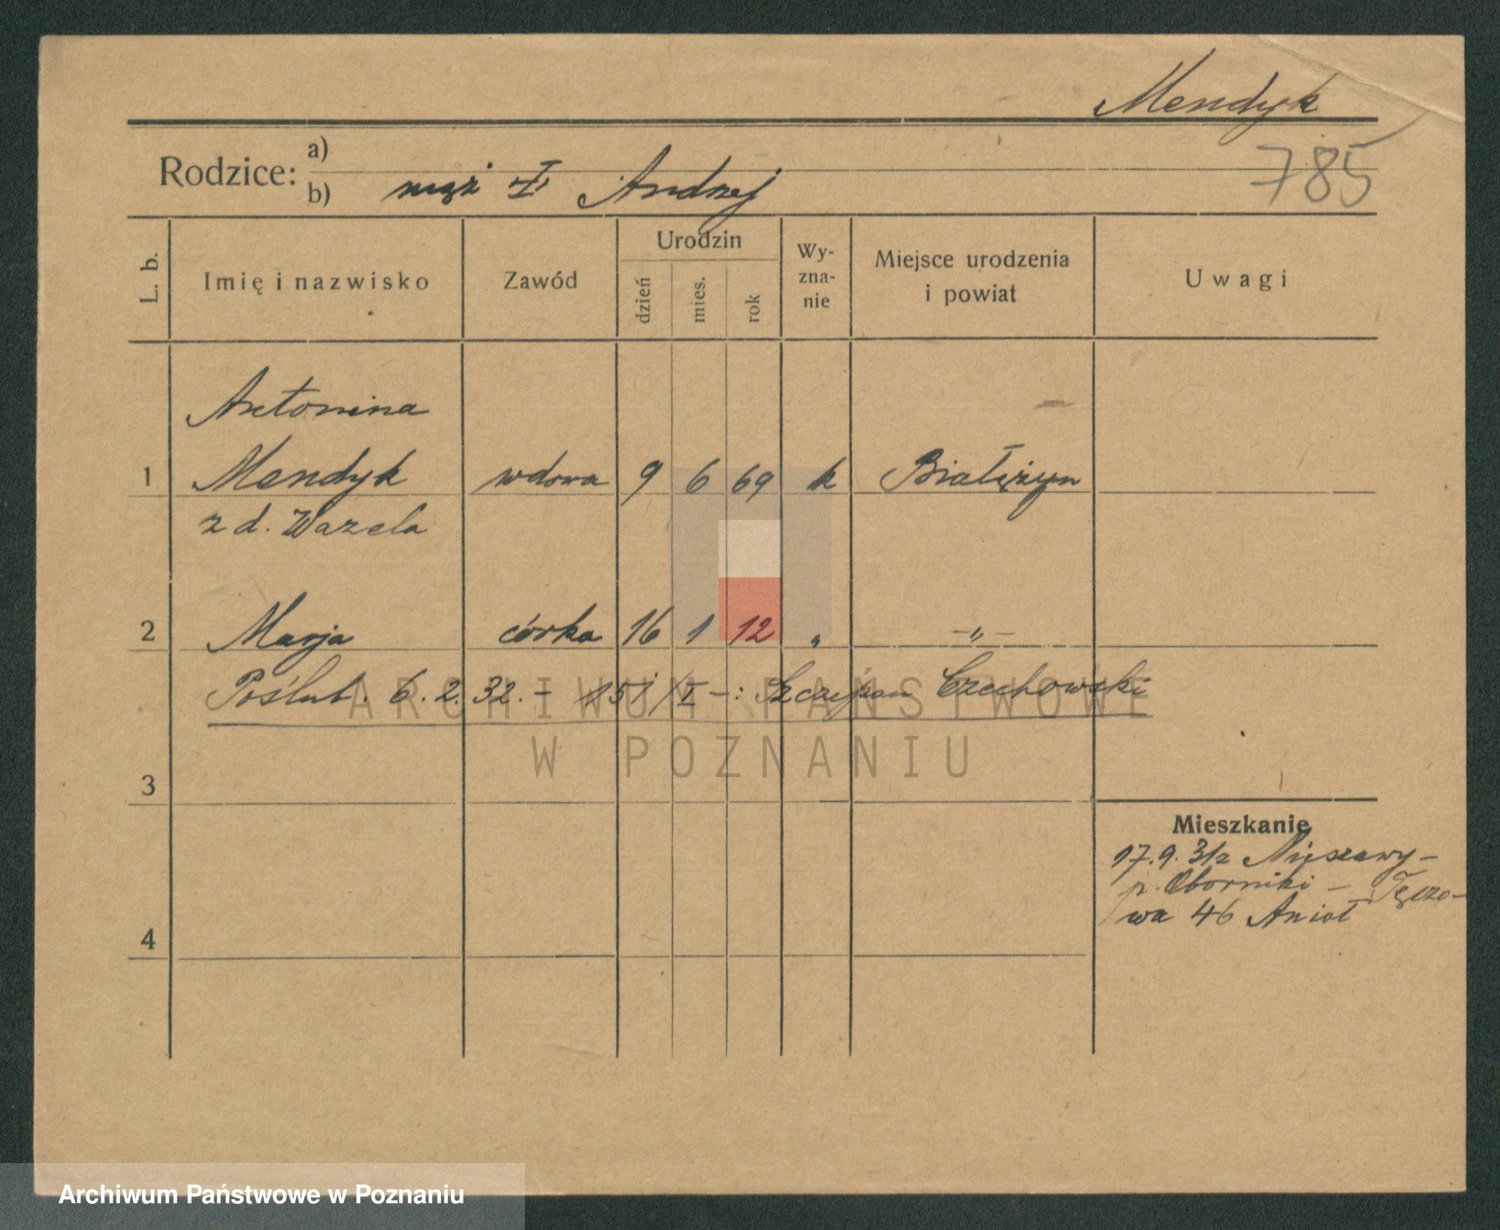 Mendyk
785
Rodzice: a)
b) mąż I Andrzej
L. b.
Imię i nazwisko
Zawód
Urodzin
dzień
mies.
rok
Wy-
zna-
nie
Miejsce urodzenia
i powiat
Uwagi
Antonina
1 Mendyk wdowa 9 6 69 k Białężyn
z d. Wazela
2 Marja córka 16 1 12 „ -„-
Poślub. 6.2.32. - /I -: Szczepan Czechowski
3
Mieszkanie
17.9.31 z Nieszawy -
p. Oborniki - Tęczo-
wa 46 Anioł
4
ARCHIWUM PAŃSTWOWE
W POZNANIU
Archiwum Państwowe w Poznaniu